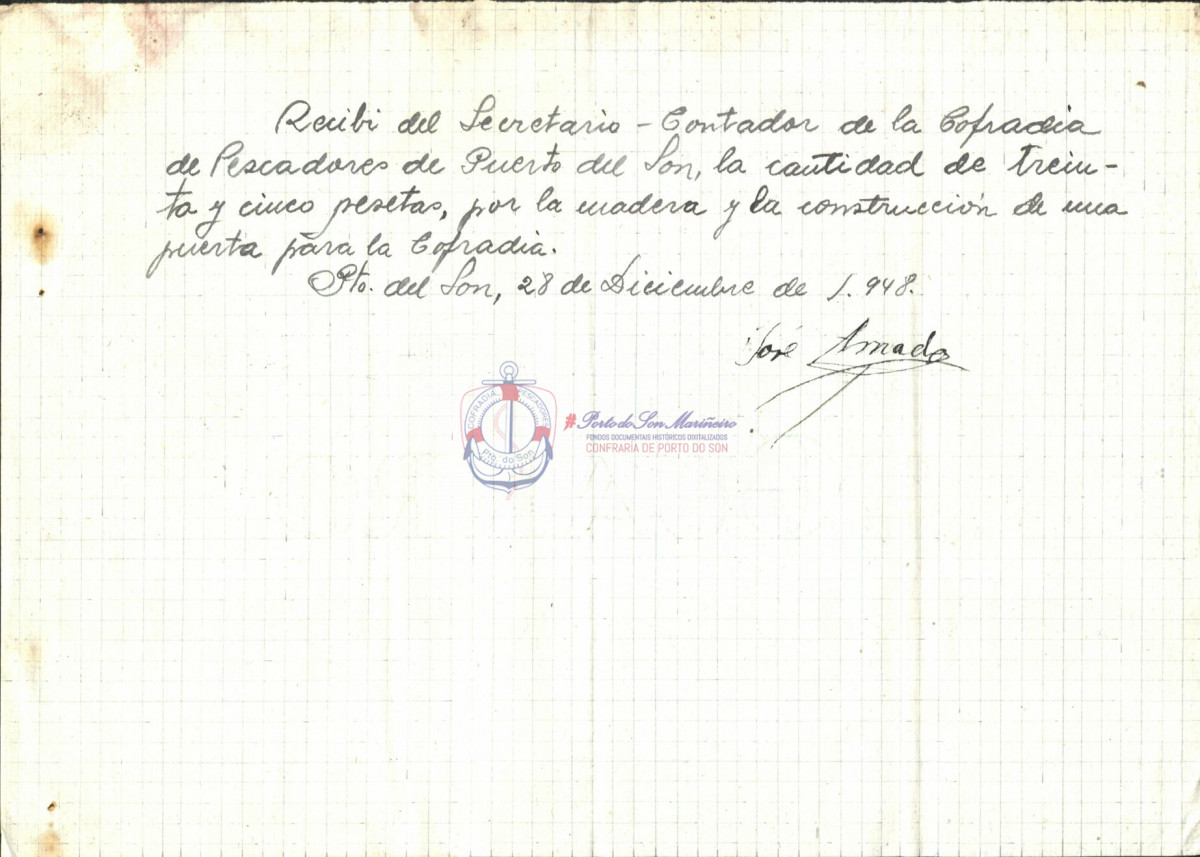 Recibi del Secretario - Contador de la Cofradia
de Pescadores de Puerto del Son, la cantidad de trein-
ta y cinco pesetas, por la madera y la construcción de una
puerta para la Cofradia.
Pto. del Son, 28 de Diciembre de 1.948.
José Amado
COFRADIA PESCADORES
Pto. do Son
#Porto do Son Mariñeiro
FONDOS DOCUMENTAIS HISTÓRICOS DIXITALIZADOS
CONFRARÍA DE PORTO DO SON